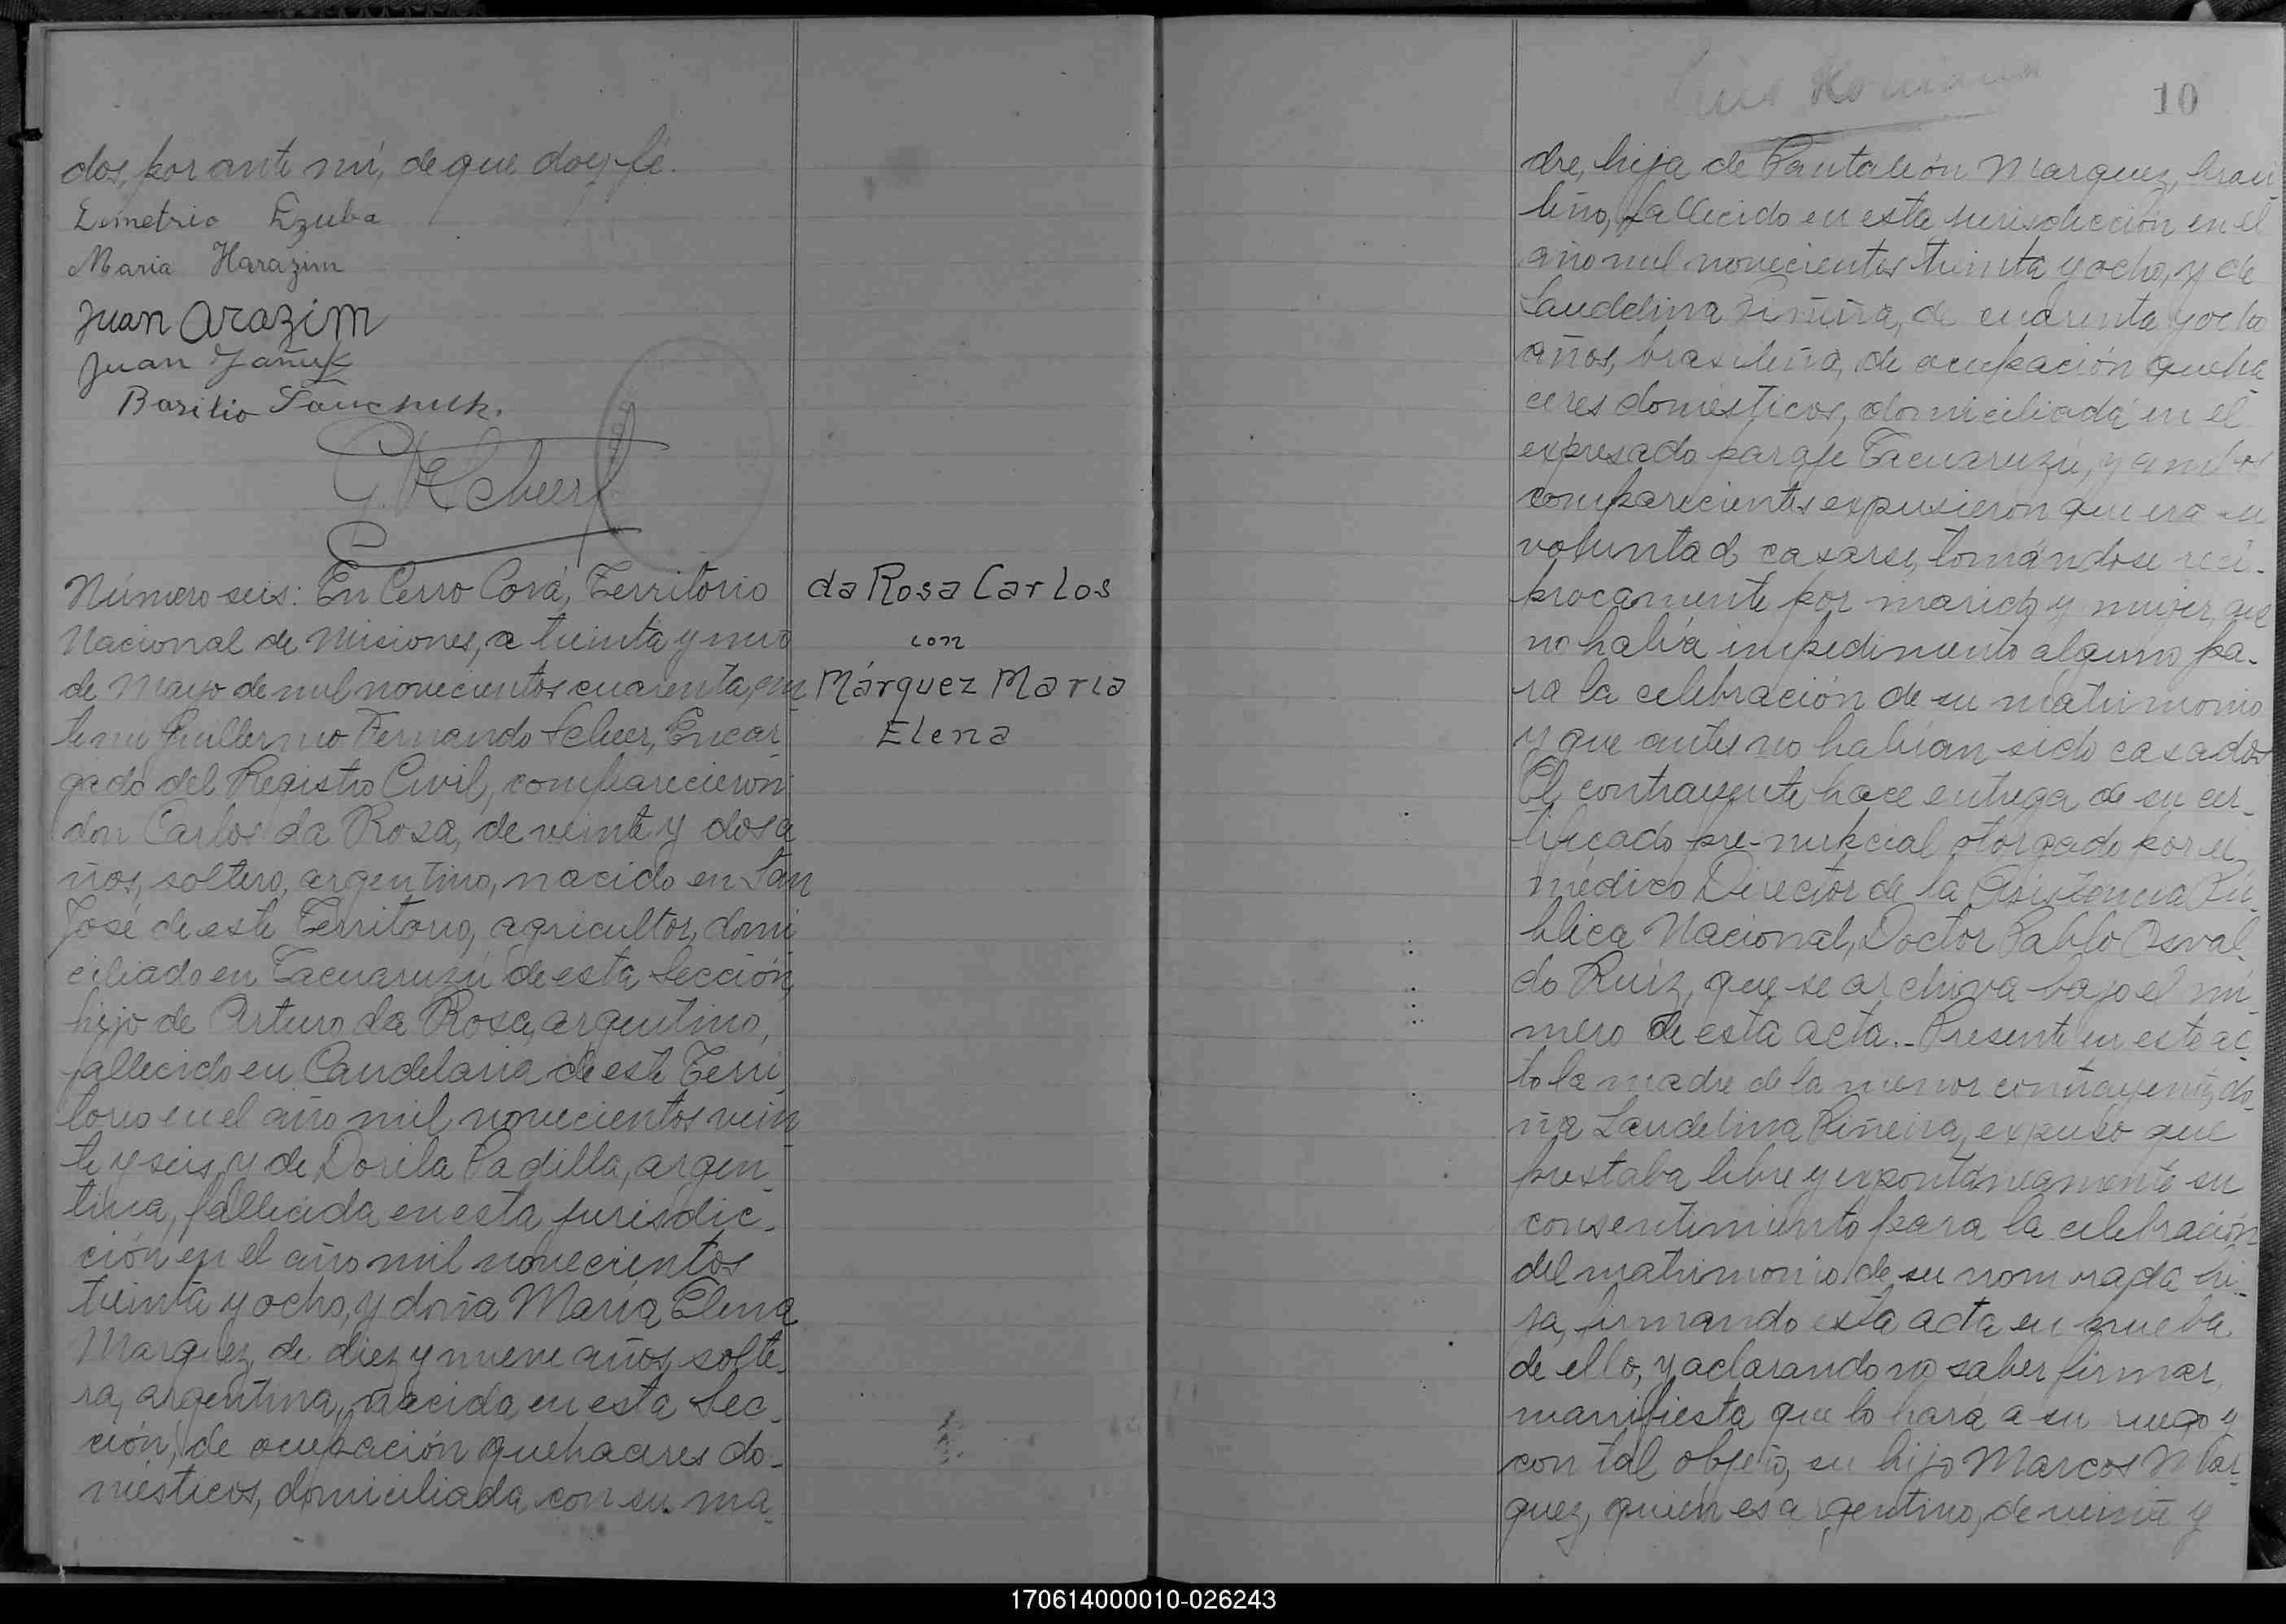 dos, por ante mí, de que doy fé.
Demetrio Dzuba
Maria Harazim
Juan Arazim
Juan Yañuk
Basilio Sauchuk.
G. F. Scheer
Número seis: En Cerro Corá, Territorio
Nacional de Misiones, a treinta y uno
de Mayo de mil novecientos cuarenta, an
te mi Guillermo Fernando Scheer, Encar
gado del Registro Civil, comparecieron
don Carlos da Rosa, de veinte y dos a
ños, soltero, argentino, nacido en San
José de este Territorio, agricultor, domi
ciliado en Tacuaruzú de esta Sección,
hijo de Arturo da Rosa, argentino,
fallecido en Candelaria de este Terri
torio en el año mil novecientos vein
te y seis, y de Dorila Padilla, argen
tina, fallecida en esta jurisdic-
ción en el año mil novecientos
treinta y ocho, y doña María Elena
Marquez, de diez y nueve años, solte-
ra, argentina, nacida en esta Sec-
ción, de ocupación quehaceres do-
mésticos, domiciliada con su ma-
da Rosa Carlos
con
Márquez María
Elena
10
dre, hija de Pantaleón Marquez, brasi
leño, fallecido en esta jurisdicción en el
año mil novecientos treinta y ocho, y de
Laudelina Piñeira, de cuarenta y ocho
años, brasileña, de ocupación queha
ceres domésticos, domiciliada en el
expresado paraje Tacuaruzú, y ambos
comparecientes expusieron que era su
voluntad casarse, tomándose recí-
procamente por marido y mujer, que
no había impedimento alguno pa-
ra la celebración de su matrimonio
y que antes no habían sido casados
El contrayente hace entrega de su cer-
tificado pre-nupcial otorgado por el
médico Director de la Asistencia Pú-
blica Nacional, Doctor Pablo Osval-
do Ruíz, que se archiva bajo el nú
mero de esta acta.- Presente en este ac-
to la madre de la menor contrayente, do-
ña Laudelina Piñeira, expuso que
prestaba libre y expontáneamente su
consentimiento para la celebración
del matrimonio de su nombrada hi-
ja, firmando esta acta en prueba
de ello, y aclarando no saber firmar,
manifiesta que lo hará a su ruego y
con tal objeto, su hijo Marcos Mar-
quez, quién es argentino, de veinte y
170614000010-026243